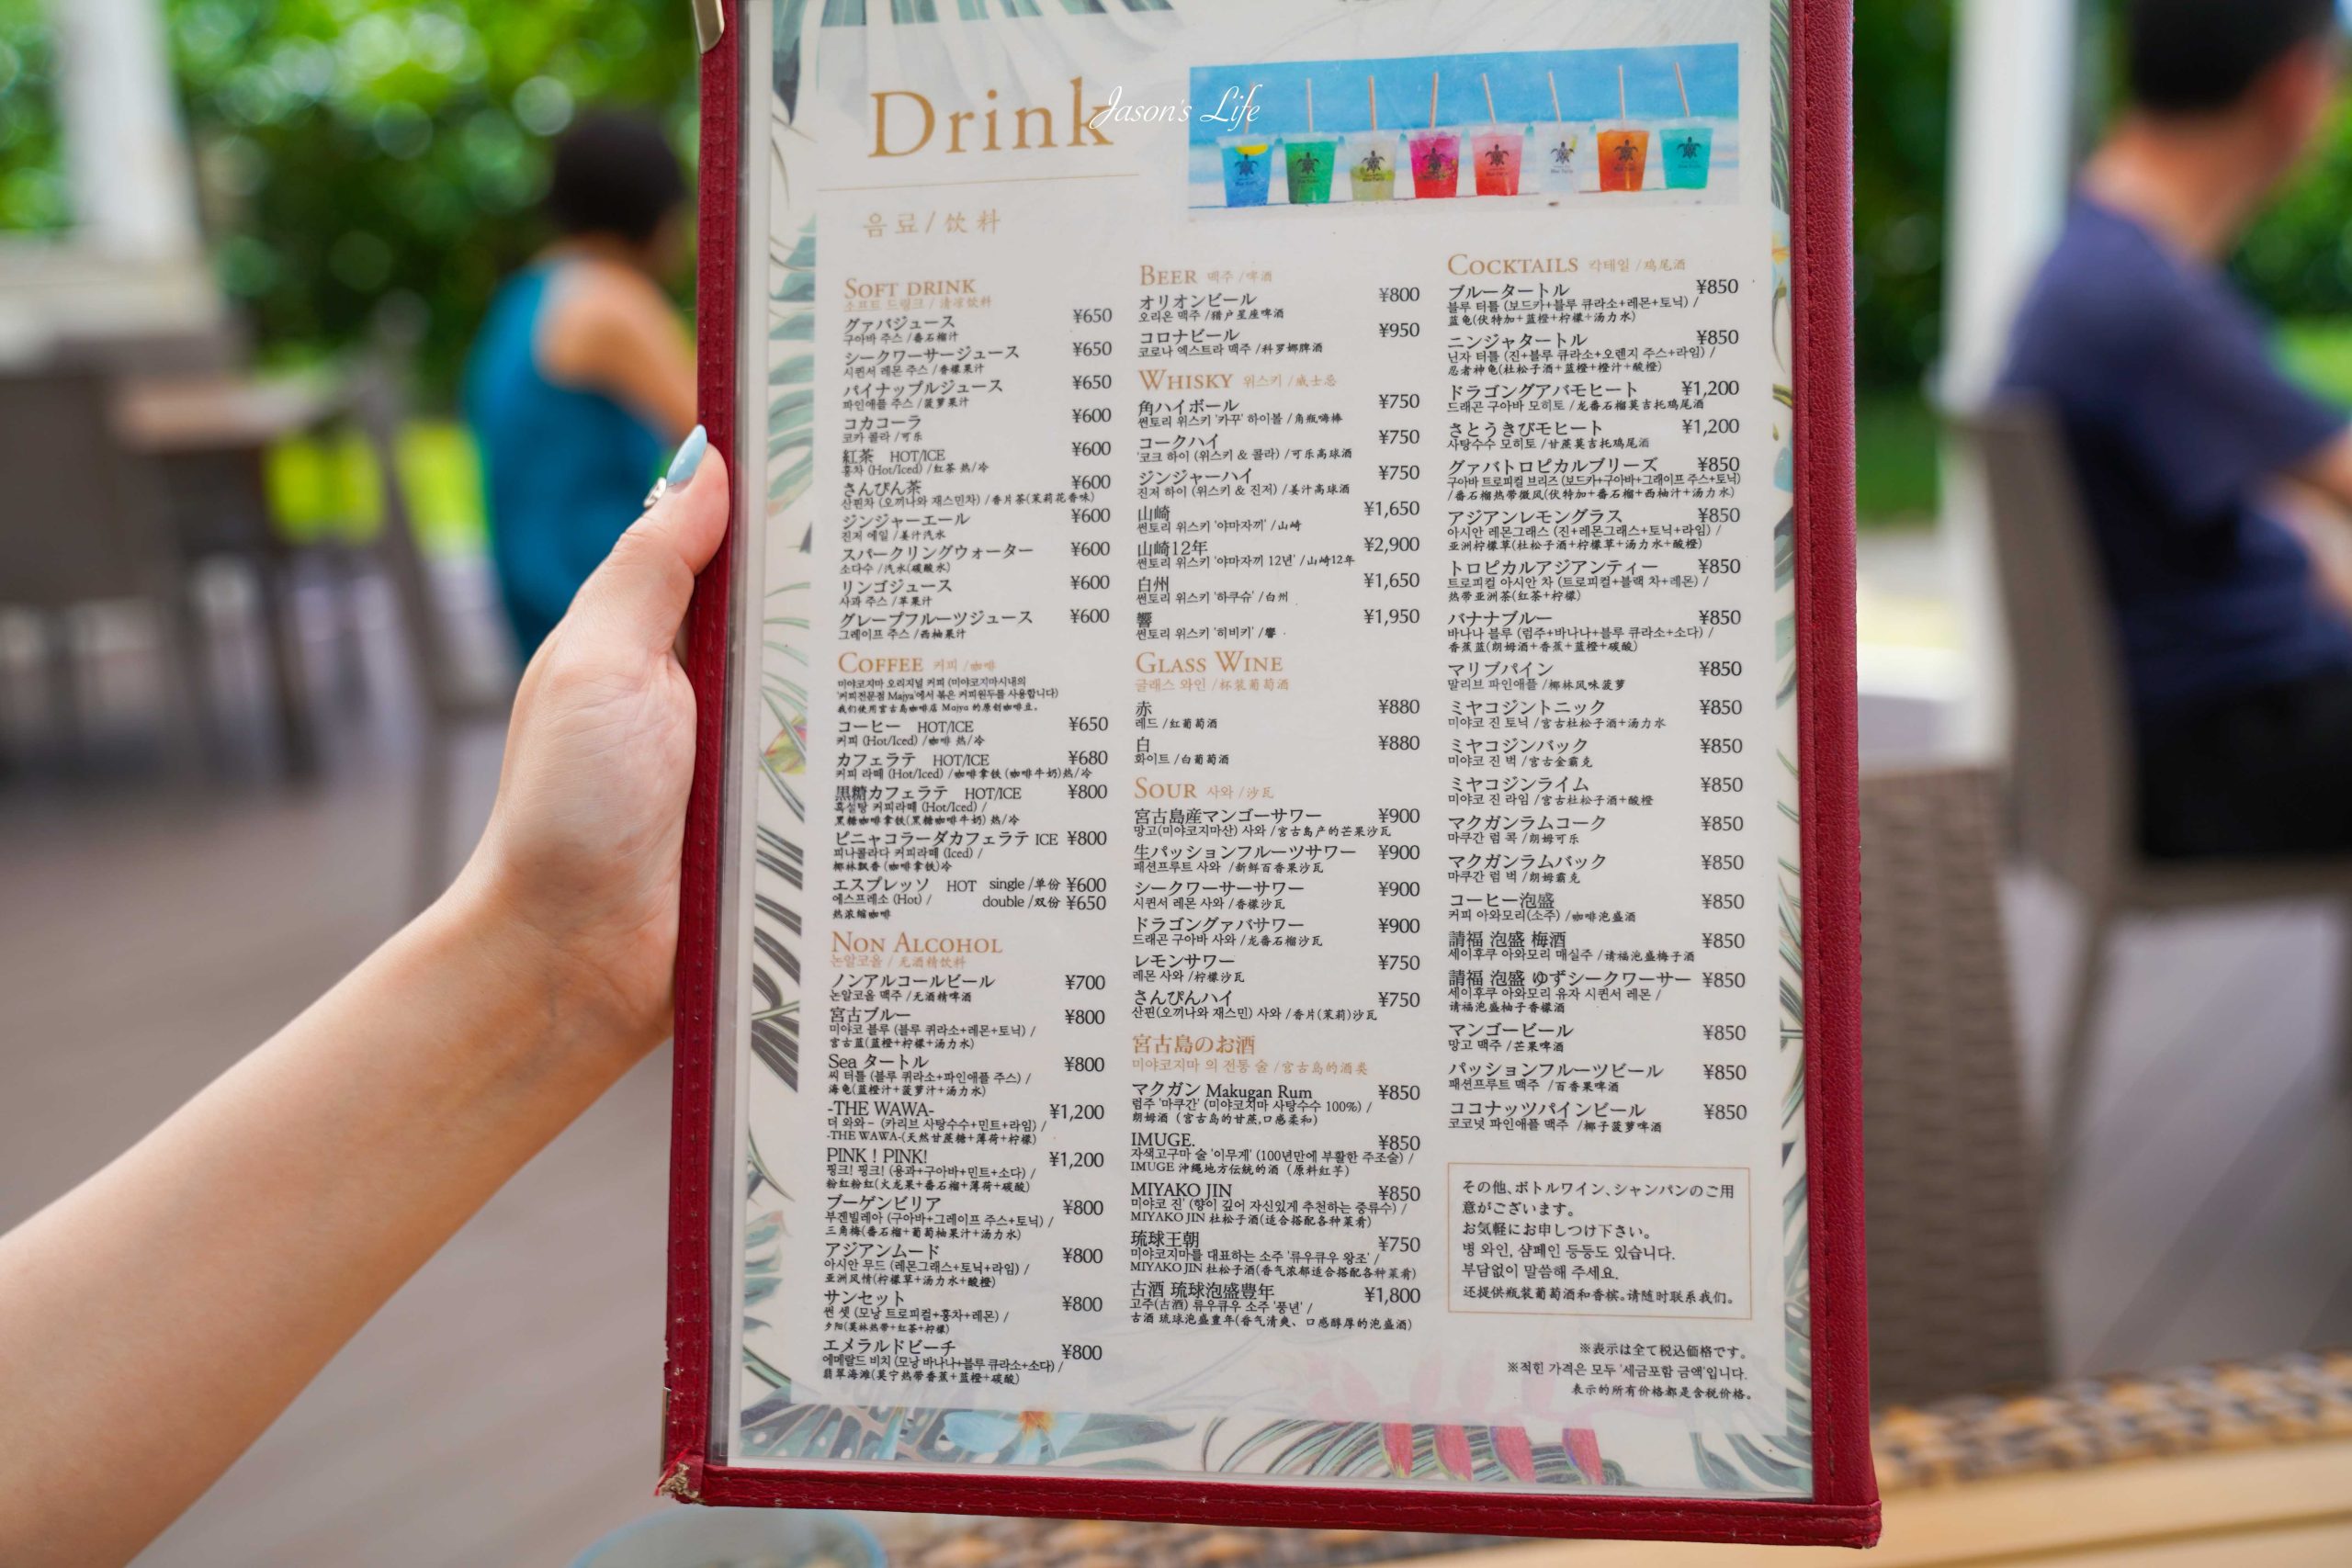 Drink
Jason's Life
음료/饮料
SOFT DRINK
소프트 드링크 / 清凉饮料
グァバジュース ¥650
구아바 주스 /番石榴汁
シークワーサージュース ¥650
시퀀서 레몬 주스 /香檬果汁
パイナップルジュース ¥650
파인애플 주스 /菠萝果汁
コカコーラ ¥600
코카 콜라 /可乐
紅茶 HOT/ICE ¥600
홍차 (Hot/Iced) /红茶 热/冷
さんぴん茶 ¥600
산핀차 (오끼나와 재스민차) /香片茶(茉莉花香味)
ジンジャーエール ¥600
진저 에일 /姜汁汽水
スパークリングウォーター ¥600
소다수 /汽水(碳酸水)
リンゴジュース ¥600
사과 주스 /苹果汁
グレープフルーツジュース ¥600
그레이프 주스 /西柚果汁
COFFEE 커피 /咖啡
미야코지마 오리지널 커피 (미야코지마시내의
'커피전문점 Majya'에서 볶은 커피원두를 사용합니다)
我们使用宫古岛咖啡店 Majya 的原创咖啡豆。
コーヒー HOT/ICE ¥650
커피 (Hot/Iced) /咖啡 热/冷
カフェラテ HOT/ICE ¥680
커피 라떼 (Hot/Iced) /咖啡拿铁 (咖啡牛奶)热/冷
黒糖カフェラテ HOT/ICE ¥800
흑설탕 커피라떼 (Hot/Iced) /
黑糖咖啡拿铁(黑糖咖啡牛奶) 热/冷
ピニャコラーダカフェラテ ICE ¥800
피나콜라다 커피라떼 (Iced) /
椰林飘香 (咖啡拿铁)冷
エスプレッソ HOT single /单份 ¥600
에스프레소 (Hot) / double /双份 ¥650
热浓缩咖啡
NON ALCOHOL
논알코올 / 无酒精饮料
ノンアルコールビール ¥700
논알코올 맥주 /无酒精啤酒
宮古ブルー ¥800
미야코 블루 (블루 퀴라소+레몬+토닉) /
宫古蓝(蓝橙+柠檬+汤力水)
Sea タートル ¥800
씨 터틀 (블루 퀴라소+파인애플 주스) /
海龟(蓝橙汁+菠萝汁+汤力水)
-THE WAWA- ¥1,200
더 와와- (카리브 사탕수수+민트+라임) /
-THE WAWA-(天然甘蔗糖+薄荷+柠檬)
PINK ! PINK! ¥1,200
핑크! 핑크! (용과+구아바+민트+소다) /
粉红粉红(火龙果+番石榴+薄荷+碳酸)
ブーゲンビリア ¥800
부겐빌레아 (구아바+그레이프 주스+토닉) /
三角梅(番石榴+葡萄柚果汁+汤力水)
アジアンムード ¥800
아시안 무드 (레몬그래스+토닉+라임) /
亚洲风情(柠檬草+汤力水+酸橙)
サンセット ¥800
썬 셋 (모닝 트로피컬+홍차+레몬) /
夕阳(莫林热带+红茶+柠檬)
エメラルドビーチ ¥800
에메랄드 비치 (모닝 바나나+블루 큐라소+소다) /
翡翠海滩(莫宁热带香蕉+蓝橙+碳酸)
BEER 맥주 /啤酒
オリオンビール ¥800
오리온 맥주 /猎户星座啤酒
コロナビール ¥950
코로나 엑스트라 맥주 /科罗娜牌酒
WHISKY 위스키 /威士忌
角ハイボール ¥750
썬토리 위스키 '카꾸' 하이볼 /角瓶嗨棒
コークハイ ¥750
'코크 하이 (위스키 & 콜라) /可乐高球酒
ジンジャーハイ ¥750
진저 하이 (위스키 & 진저) /姜汁高球酒
山崎 ¥1,650
썬토리 위스키 '야마자끼' /山崎
山崎12年 ¥2,900
썬토리 위스키 '야마자끼 12년' /山崎12年
白州 ¥1,650
썬토리 위스키 '하쿠슈' /白州
響 ¥1,950
썬토리 위스키 '히비키' /響
GLASS WINE
글래스 와인 /杯装葡萄酒
赤 ¥880
레드 /红葡萄酒
白 ¥880
화이트 /白葡萄酒
SOUR 사와 /沙瓦
宮古島産マンゴーサワー ¥900
망고(미야코지마산) 사와 /宫古岛产的芒果沙瓦
生パッションフルーツサワー ¥900
패션프루트 사와 /新鲜百香果沙瓦
シークワーサーサワー ¥900
시퀀서 레몬 사와 /香檬沙瓦
ドラゴングァバサワー ¥900
드래곤 구아바 사와 /龙番石榴沙瓦
レモンサワー ¥750
레몬 사와 /柠檬沙瓦
さんぴんハイ ¥750
산핀(오끼나와 재스민) 사와 /香片(茉莉)沙瓦
宮古島のお酒
미야코지마 의 전통 술 /宫古岛的酒类
マクガン Makugan Rum ¥850
럼주 '마쿠간' (미야코지마 사탕수수 100%) /
朗姆酒 (宫古岛的甘蔗,口感柔和)
IMUGE. ¥850
자색고구마 술 '이무게' (100년만에 부활한 주조술) /
IMUGE 沖縄地方伝統的酒 (原料紅芋)
MIYAKO JIN ¥850
미야코 진' (향이 깊어 자신있게 추천하는 증류수) /
MIYAKO JIN 杜松子酒(适合搭配各种菜肴)
琉球王朝 ¥750
미야코지마를 대표하는 소주 '류우큐우 왕조' /
MIYAKO JIN 杜松子酒(香气浓郁适合搭配各种菜肴)
古酒 琉球泡盛豊年 ¥1,800
고주(古酒) 류우큐우 소주 '풍년' /
古酒 琉球泡盛重年(香气清爽、口感醇厚的泡盛酒)
COCKTAILS 칵테일 /鸡尾酒
ブルータートル ¥850
블루 터틀 (보드카+블루 큐라소+레몬+토닉) /
蓝龟(伏特加+蓝橙+柠檬+汤力水)
ニンジャタートル ¥850
닌자 터틀 (진+블루 큐라소+오렌지 주스+라임) /
忍者神龟(杜松子酒+蓝橙+橙汁+酸橙)
ドラゴングアバモヒート ¥1,200
드래곤 구아바 모히토 /龙番石榴莫吉托鸡尾酒
さとうきびモヒート ¥1,200
사탕수수 모히토 /甘蔗莫吉托鸡尾酒
グァバトロピカルブリーズ ¥850
구아바 트로피컬 브리즈 (보드카+구아바+그레이프 주스+토닉)
/番石榴热带微风(伏特加+番石榴+西柚汁+汤力水)
アジアンレモングラス ¥850
아시안 레몬그래스 (진+레몬그래스+토닉+라임) /
亚洲柠檬草(杜松子酒+柠檬草+汤力水+酸橙)
トロピカルアジアンティー ¥850
트로피컬 아시안 차 (트로피컬+블랙 차+레몬) /
热带亚洲茶(红茶+柠檬)
バナナブルー ¥850
바나나 블루 (럼주+바나나+블루 큐라소+소다) /
香蕉蓝(朗姆酒+香蕉+蓝橙+碳酸)
マリブパイン ¥850
말리브 파인애플 /椰林风味菠萝
ミヤコジントニック ¥850
미야코 진 토닉 /宫古杜松子酒+汤力水
ミヤコジンバック ¥850
미야코 진 벅 /宫古金霸克
ミヤコジンライム ¥850
미야코 진 라임 /宫古杜松子酒+酸橙
マクガンラムコーク ¥850
마쿠간 럼 콕 /朗姆可乐
マクガンラムバック ¥850
마쿠간 럼 벅 /朗姆霸克
コーヒー泡盛 ¥850
커피 아와모리(소주) /咖啡泡盛酒
請福 泡盛 梅酒 ¥850
세이후쿠 아와모리 매실주 /请福泡盛梅子酒
請福 泡盛 ゆずシークワーサー ¥850
세이후쿠 아와모리 유자 시퀀서 레몬 /
请福泡盛柚子香檬酒
マンゴービール ¥850
망고 맥주 /芒果啤酒
パッションフルーツビール ¥850
패션프루트 맥주 /百香果啤酒
ココナッツパインビール ¥850
코코넛 파인애플 맥주 /椰子菠萝啤酒
その他、ボトルワイン、シャンパンのご用
意がございます。
お気軽にお申しつけ下さい。
병 와인, 샴페인 등등도 있습니다.
부담없이 말씀해 주세요.
还提供瓶装葡萄酒和香槟。请随时联系我们。
※表示は全て税込価格です。
※적힌 가격은 모두 '세금포함 금액'입니다.
表示的所有价格都是含税价格。